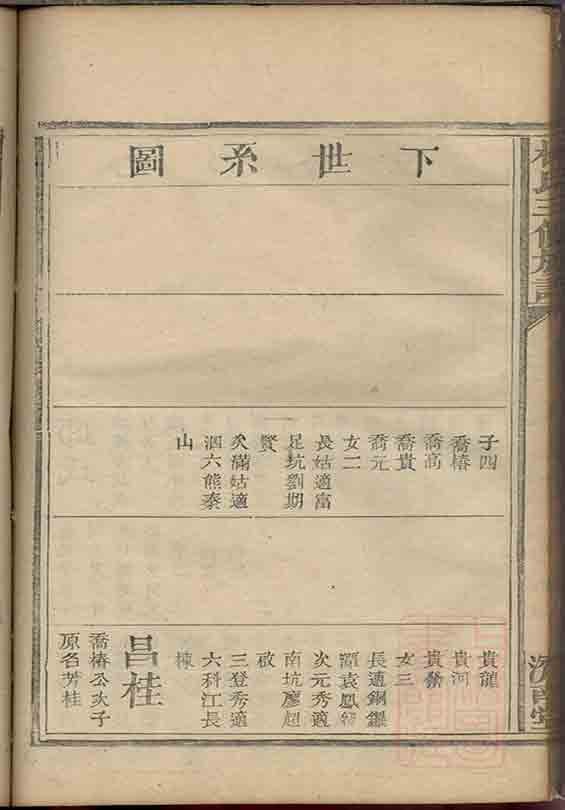 下世系圖
子四
喬椿
喬高
喬貴
喬元
女二
長姑適富
足坑劉期
賢
次滿姑適
泗六熊泰
山
貴龍
貴河
貴榮
女三
長適銅鑼
潭袁鳳
次元秀適
南坑廖超
啟
三登秀適
六科江長
棟
昌桂
喬椿公次子
原名芳桂
氏三修族譜
堂